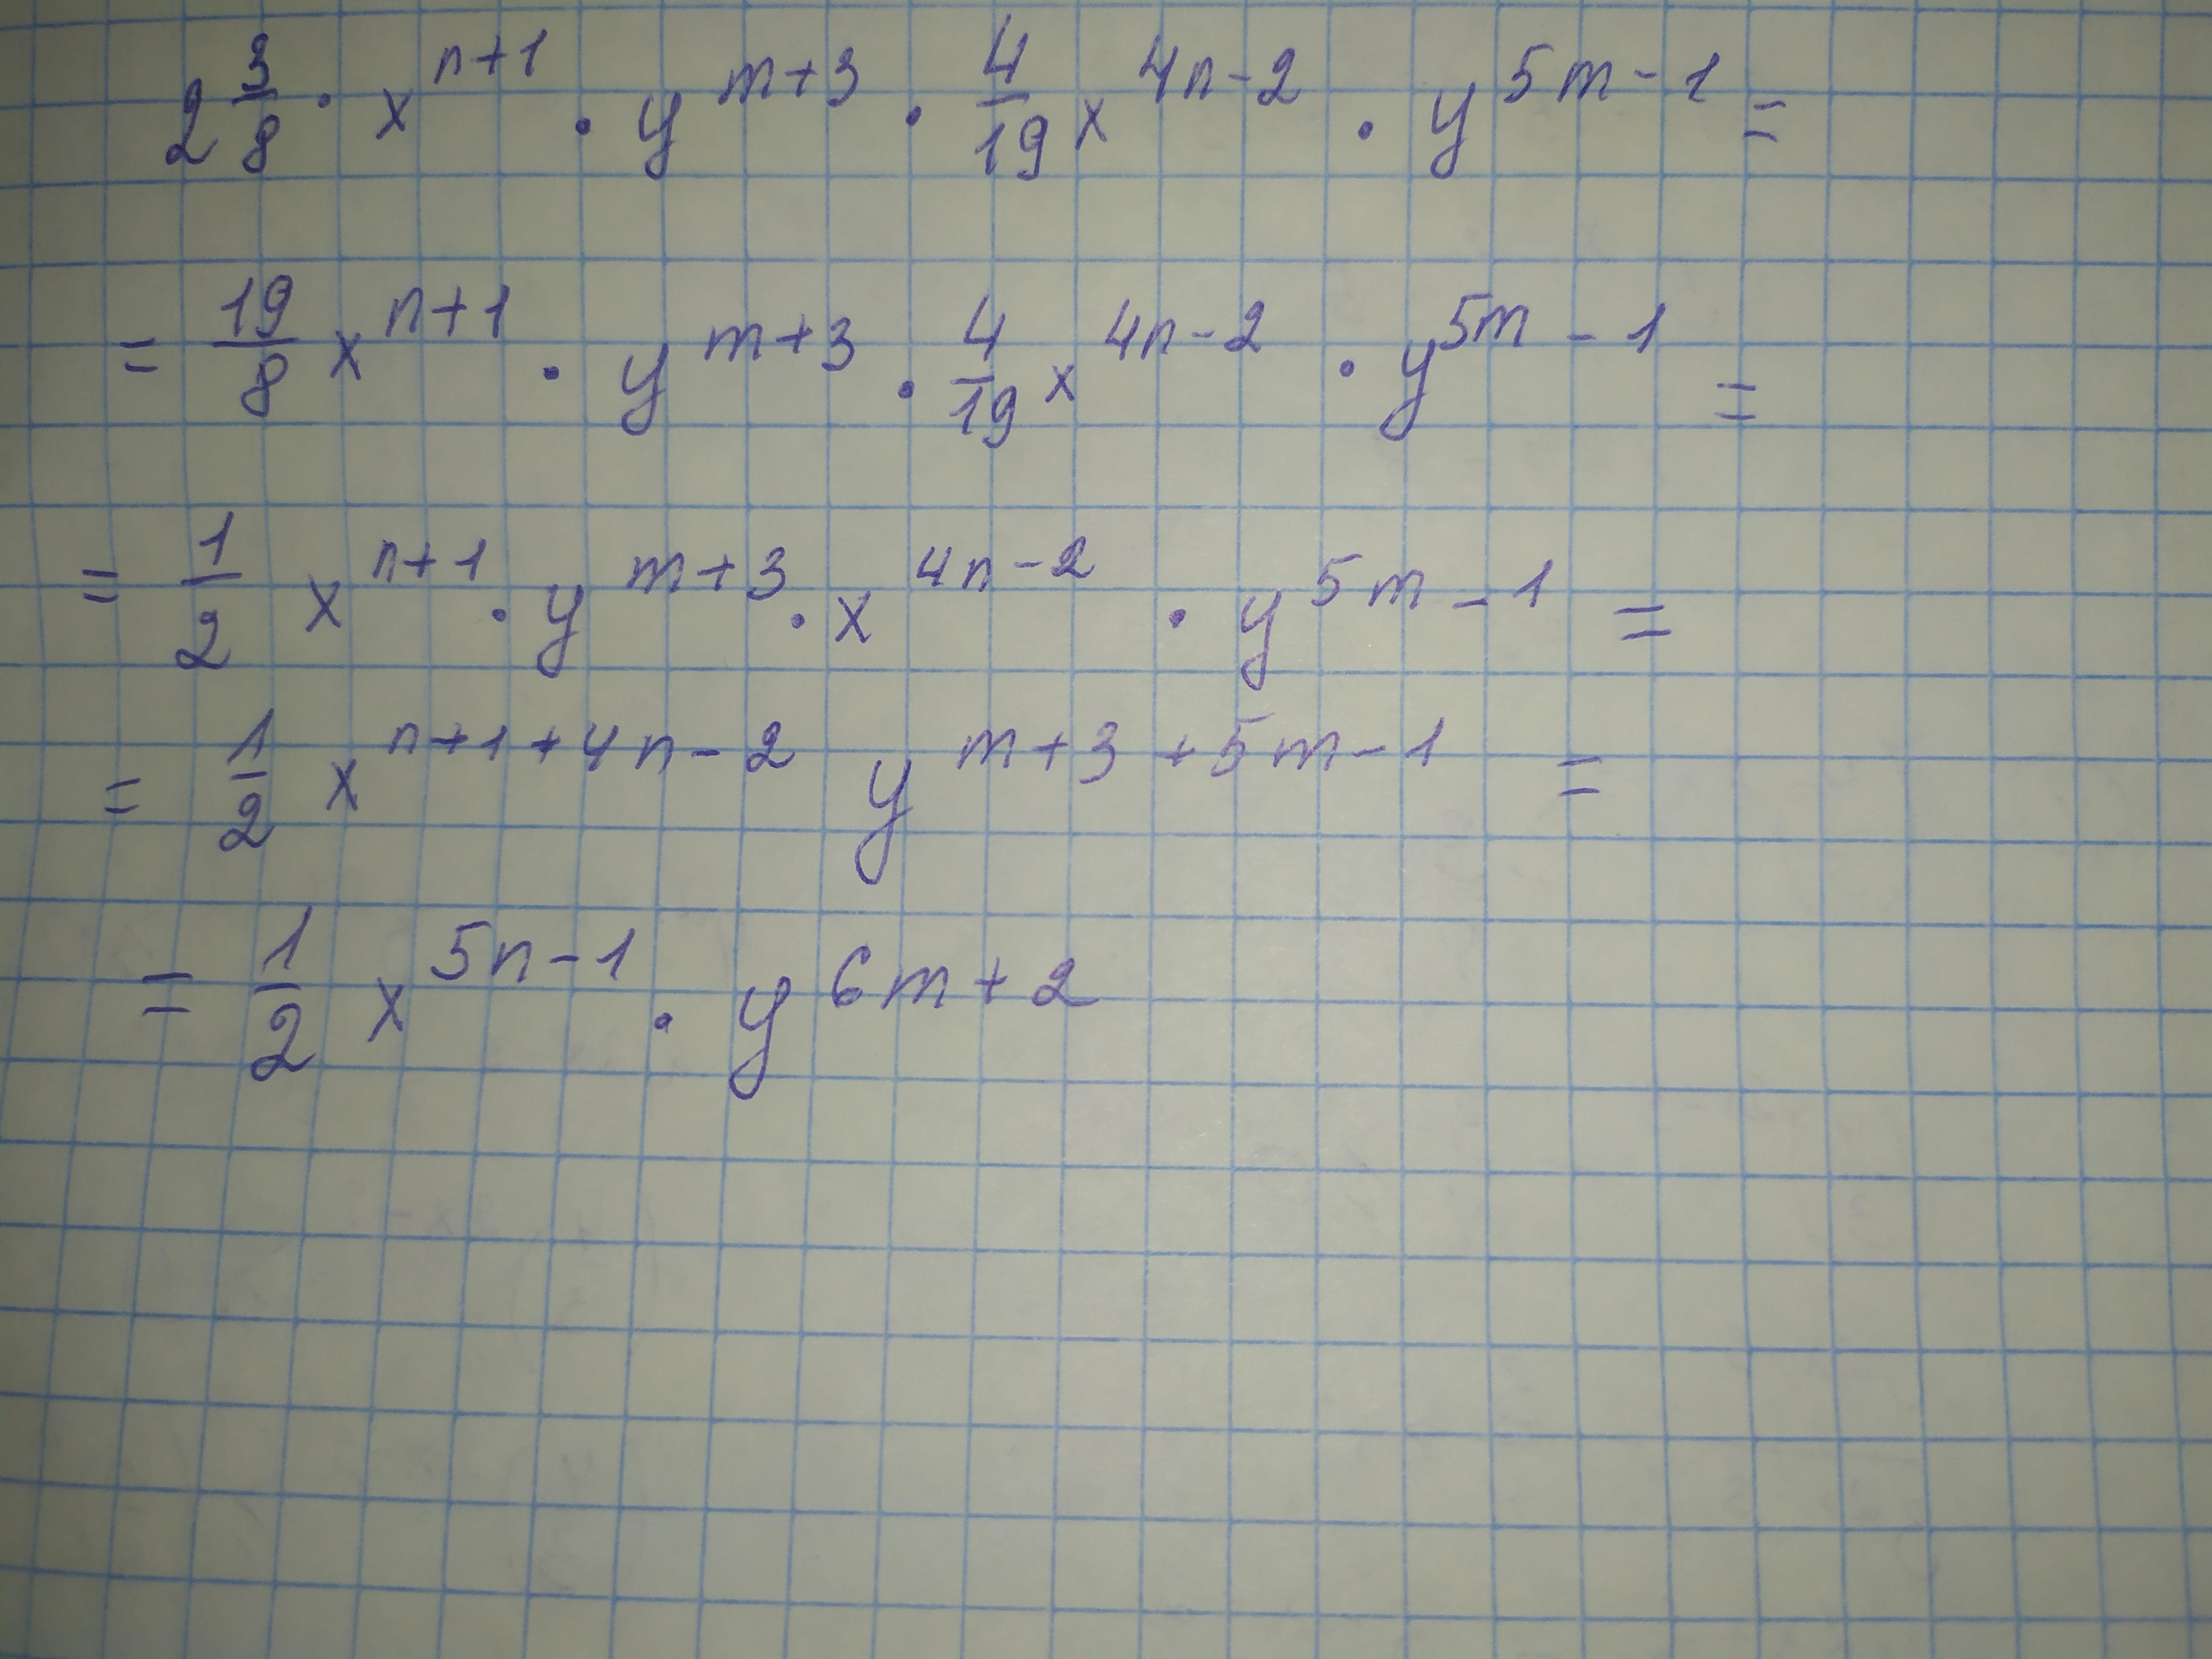 2 3/8 · x^{n+1} · y^{m+3} · 4/19 x^{4n-2} · y^{5m-1} =
= 19/8 x^{n+1} · y^{m+3} · 4/19 x^{4n-2} · y^{5m-1} =
= 1/2 x^{n+1} · y^{m+3} · x^{4n-2} · y^{5m-1} =
= 1/2 x^{n+1+4n-2} y^{m+3+5m-1} =
= 1/2 x^{5n-1} · y^{6m+2}